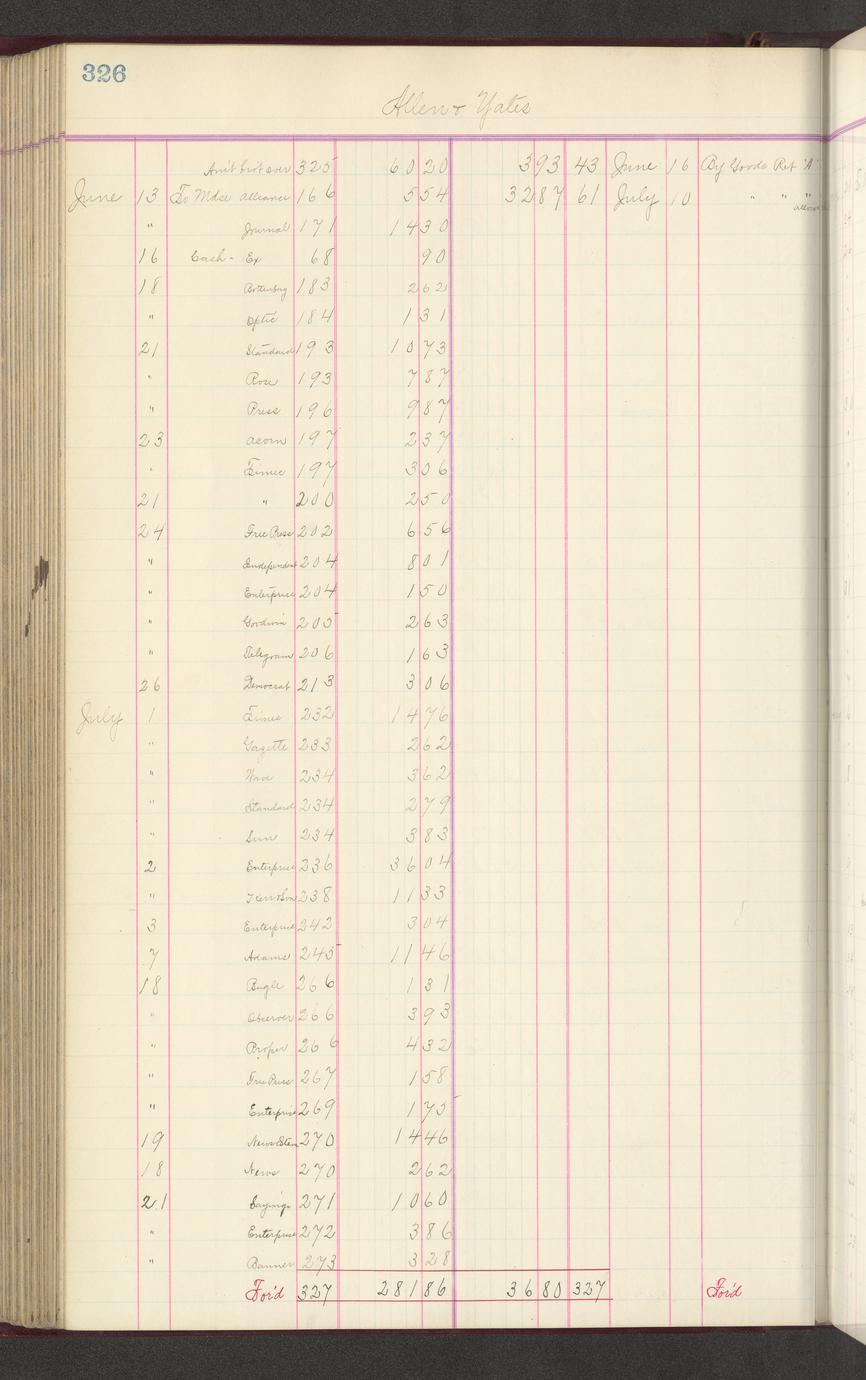 326
Allen & Yates
Am't bro't over 325 60 20 3 93 43 June 16 By Goods Ret "A"
June 13 To Mdse Alliance 166 5 54 32 87 61 July 10 " "
" Journal 171 14 30
16 Cash - Ex 68 90
18 183 2 62
" Optic 184 1 31
21 Standard 193 10 73
" Rose 193 7 87
" Press 196 9 87
23 Acorn 197 2 37
" Times 197 3 06
21 " 200 2 50
24 Free Press 202 6 56
" Independent 204 8 01
" Enterprise 204 1 50
" Goodwin 205 2 63
" Telegram 206 1 63
26 Democrat 213 3 06
July 1 Times 232 14 76
" Gazette 233 2 62
" Wave 234 3 62
" Standard 234 2 79
" Sun 234 3 83
2 Enterprise 236 36 04
" 238 11 33
3 Enterprise 242 3 04
7 Adams 245 11 46
18 Bugle 266 1 31
" Observer 266 3 93
" Proper 266 4 32
" Free Press 267 1 58
" Enterprise 269 1 75
19 News 270 14 46
18 News 270 2 62
21 Sayings 271 10 60
" Enterprise 272 3 86
" Banner 273 3 28
For'd 327 281 86 36 80 327 For'd